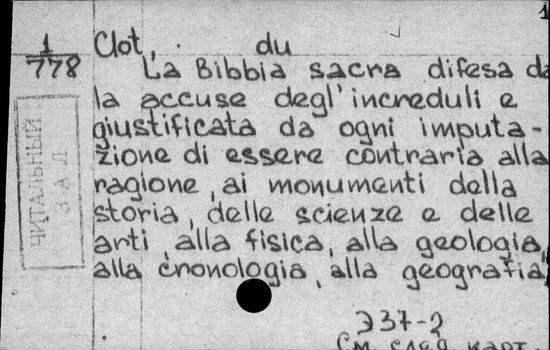 1
1/778
Clot, du
La Bibbia sacra difesa da
la accuse degl'increduli e
giustificata da ogni imputa-
zione di essere contraria alla
ragione, ai monumenti della
storia, delle scienze e delle
arti, alla fisica, alla geologia,
alla cronologia, alla geografia,
ЧИТАЛЬНЫЙ
ЗАЛ
Э37-2
См. след. карт.